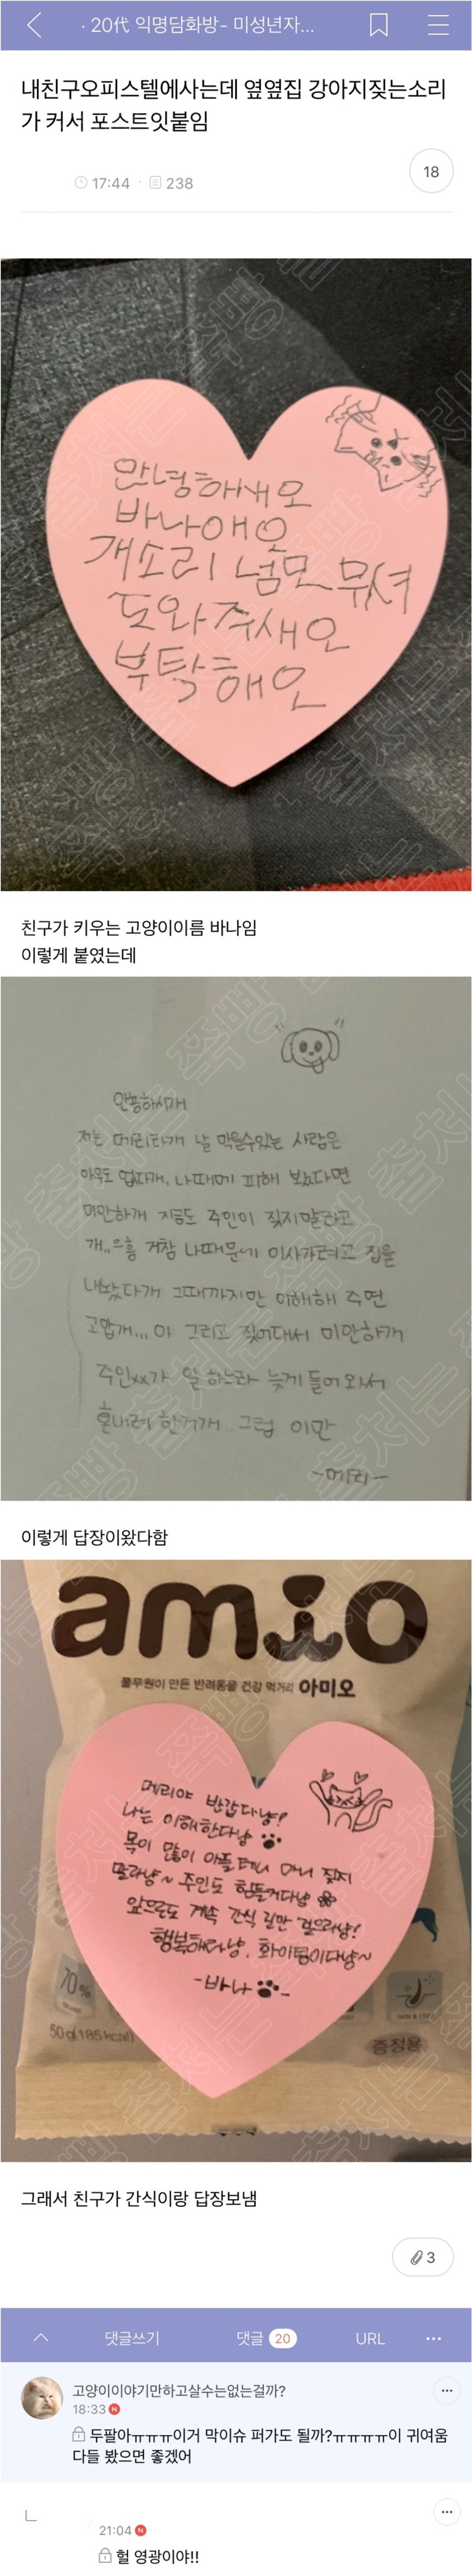 · 20代 익명담화방- 미성년자...
내친구오피스텔에사는데 옆옆집 강아지짖는소리
가 커서 포스트잇붙임
17:44 · 238
18
안녕하새오
바나애오
개소리 넘모 무셔
도와주새오
부탁해오
친구가 키우는 고양이이름 바나임
이렇게 붙였는데
안농하시개
저는 메리라개 날 막을수있는 사람은
아무도 업다개, 나때메 피해 봤다면
미안하개 지금도 주인이 짖지말라고
개..으흠 거참 나때문에 이사가려고 집을
내놨다개 그때까지만 이해해 주면
고맙개... 아 그리고 짖어대서 미안하개
주인xx가 일 하느라 늦게 들어와서
혼내려 한거개.. 그럼 이만
-메리-
이렇게 답장이왔다함
amio
풀무원이 만든 반려동물 건강 먹거리 아미오
메리야 반갑다냥!
나는 이해한다냥
목이 많이 아플테니 마니 짖지
말라냥~ 주인도 힘들거다냥
앞으로도 계속 간식 길만 걸으라냥!
행복해라냥, 화이팅이다냥~
-바나-
70%
50g(185kcal)
SKIN & COAT
증정용
그래서 친구가 간식이랑 답장보냄
3
댓글쓰기 댓글 20 URL
고양이이야기만하고살수는없는걸까?
18:33 N
두팔아ㅠㅠㅠ이거 막이슈 퍼가도 될까?ㅠㅠㅠㅠ이 귀여움
다들 봤으면 좋겠어
21:04 N
헐 영광이야!!